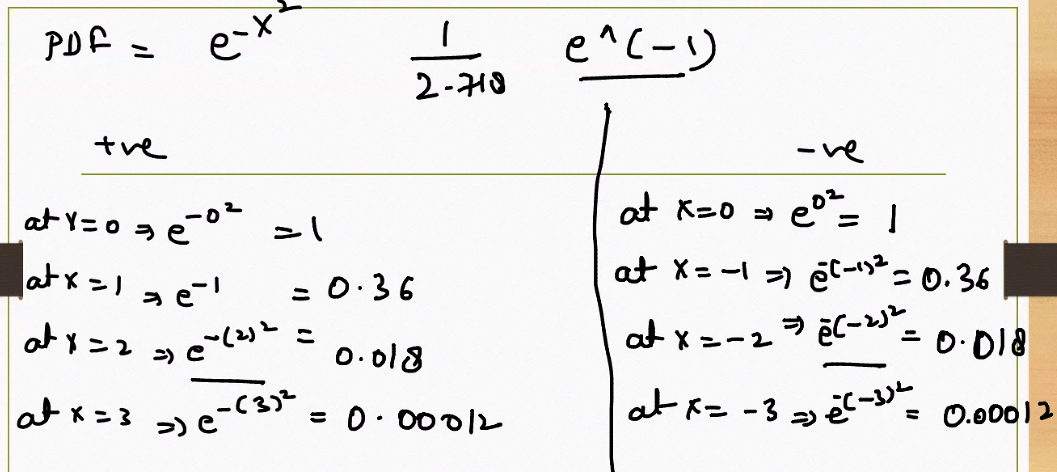 PDF = e^-x^2 1/2.718 e^(-1)
+ve
at x=0 ⇒ e^-0^2 = 1
at x=1 ⇒ e^-1 = 0.36
at x=2 ⇒ e^-(2)^2 = 0.018
at x=3 ⇒ e^-(3)^2 = 0.00012
-ve
at x=0 ⇒ e^0^2 = 1
at x=-1 ⇒ e^-(-1)^2 = 0.36
at x=-2 ⇒ e^-(-2)^2 = 0.018
at x=-3 ⇒ e^-(-3)^2 = 0.00012